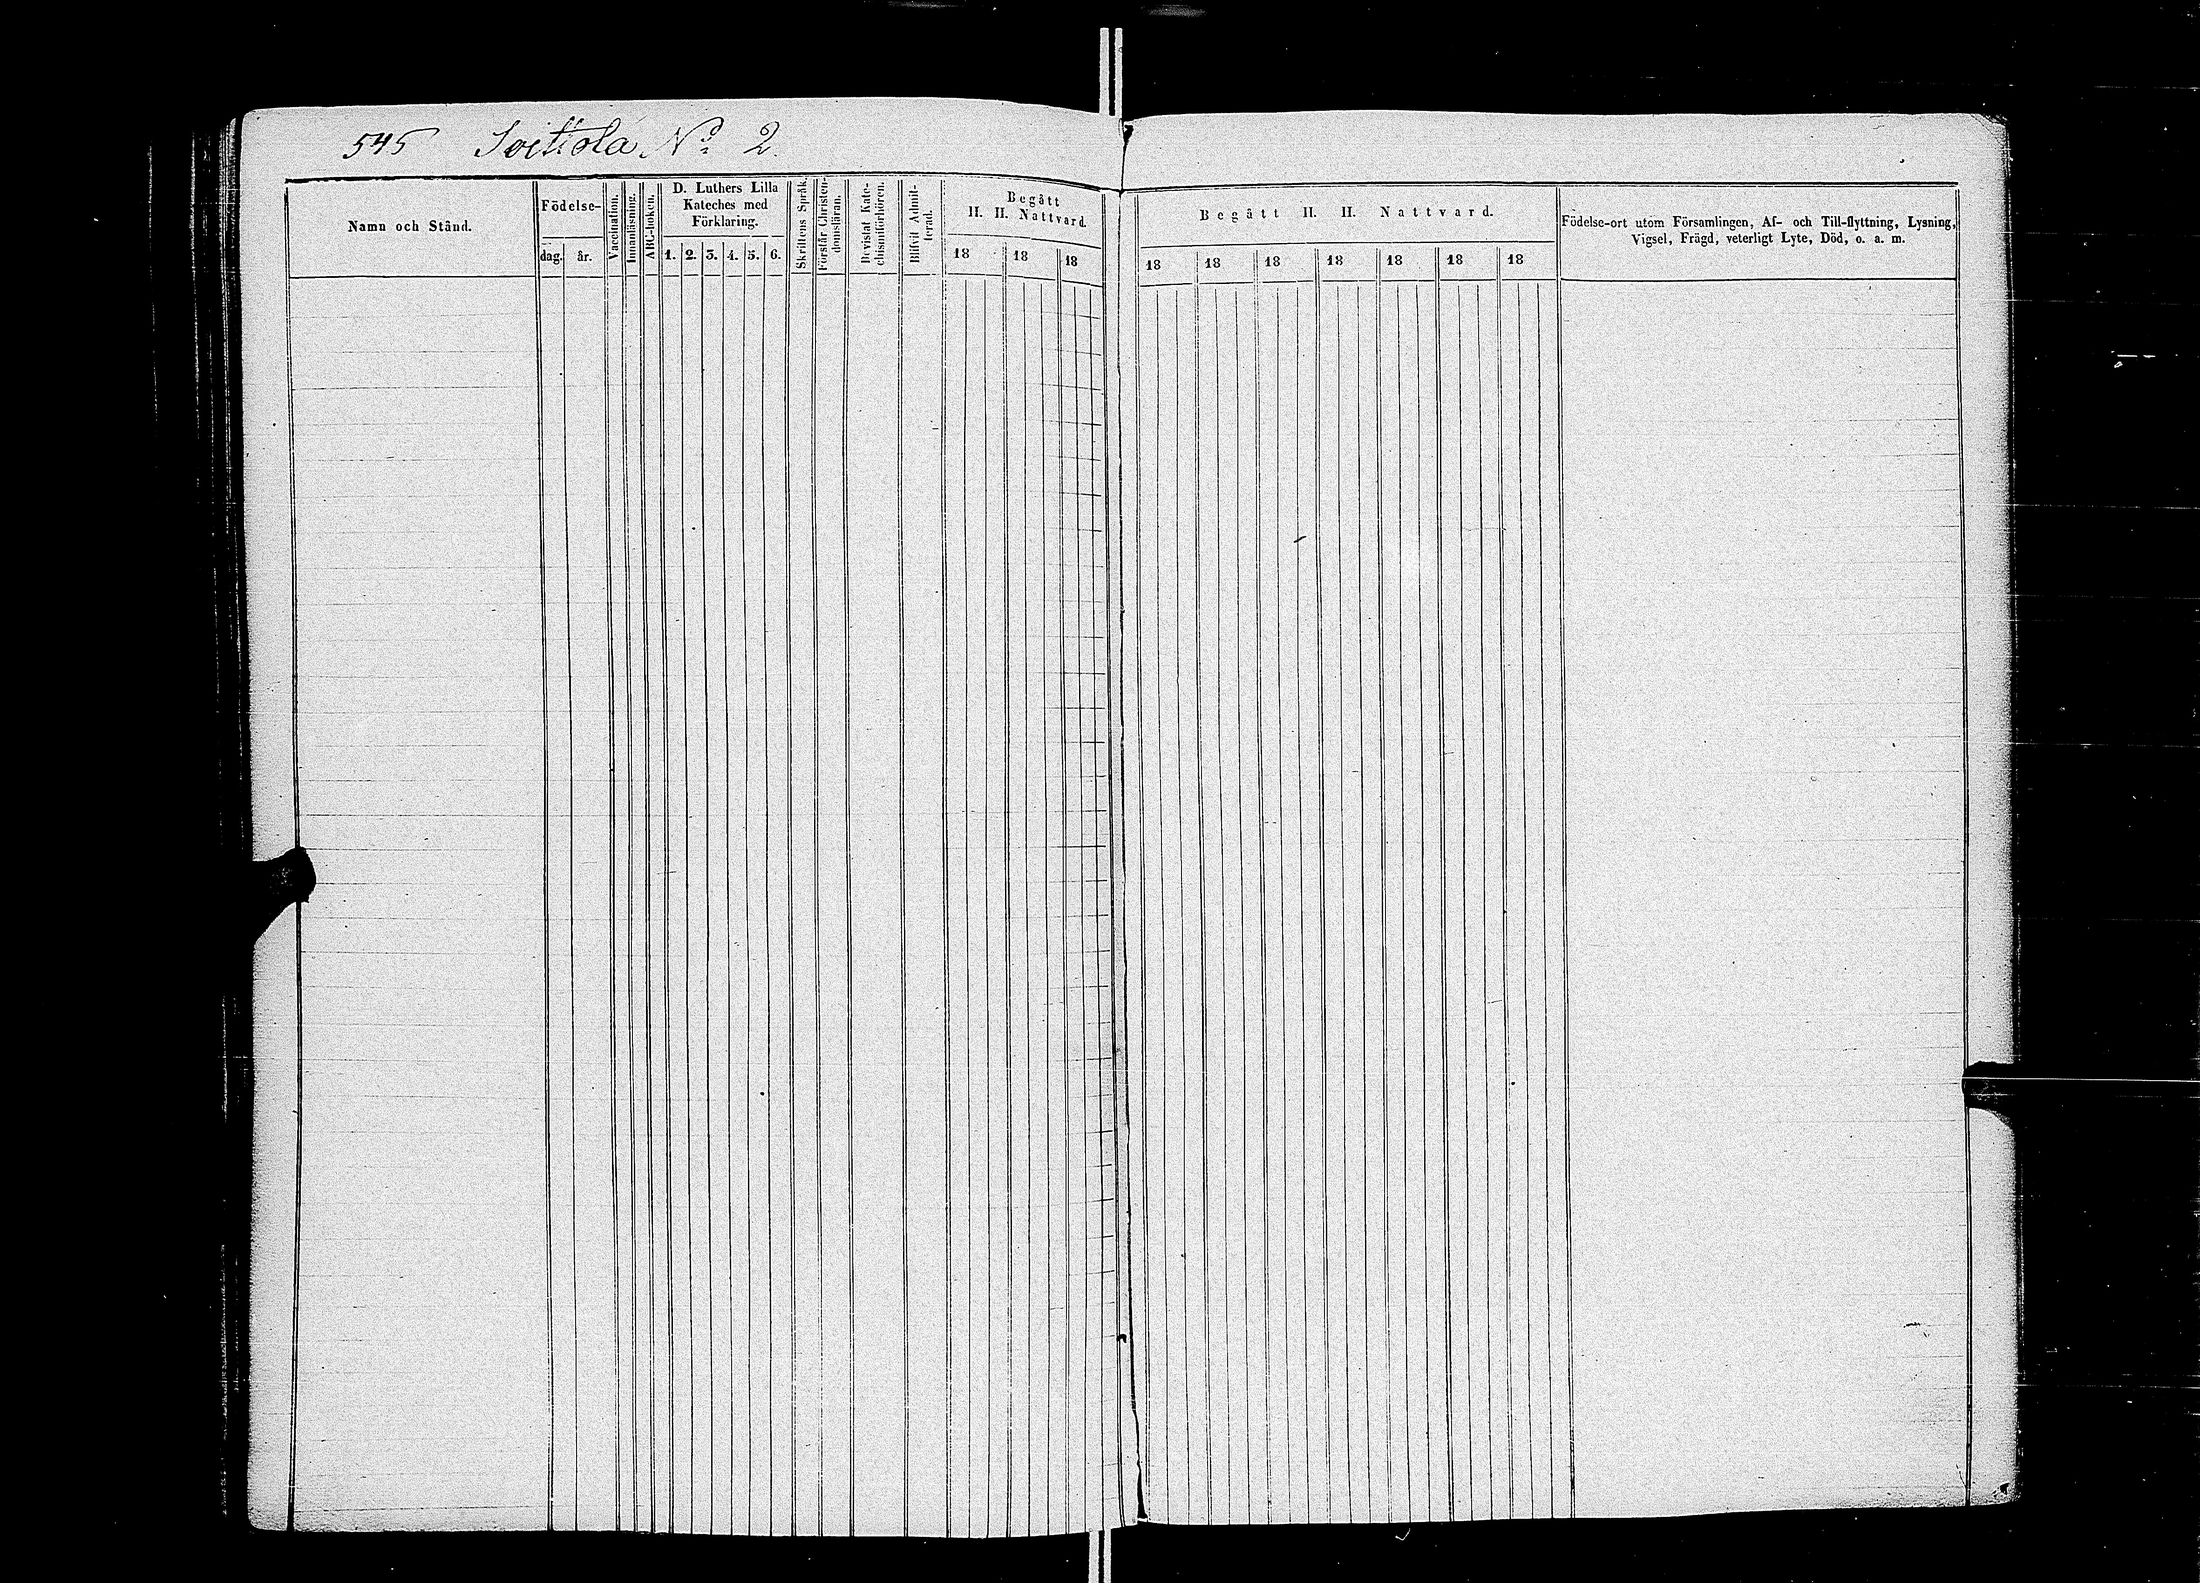 545 Soittola No 2.
Namn och Stånd.
Födelse-
dag. år.
Vaccination.
Innanläsning.
ABC-boken.
D. Luthers Lilla
Kateches med
Förklaring.
1. 2. 3. 4. 5. 6.
Skriftens Språk.
Förstår Christen-
domsläran.
Bevistat Kate-
chismiförhören.
Blifvit Admit-
terad.
Begått
H. H. Nattvard.
18 18 18
Begått H. H. Nattvard.
18 18 18 18 18 18 18
Födelse-ort utom Församlingen, Af- och Till-flyttning, Lysning,
Vigsel, Frägd, veterligt Lyte, Död, o. a. m.